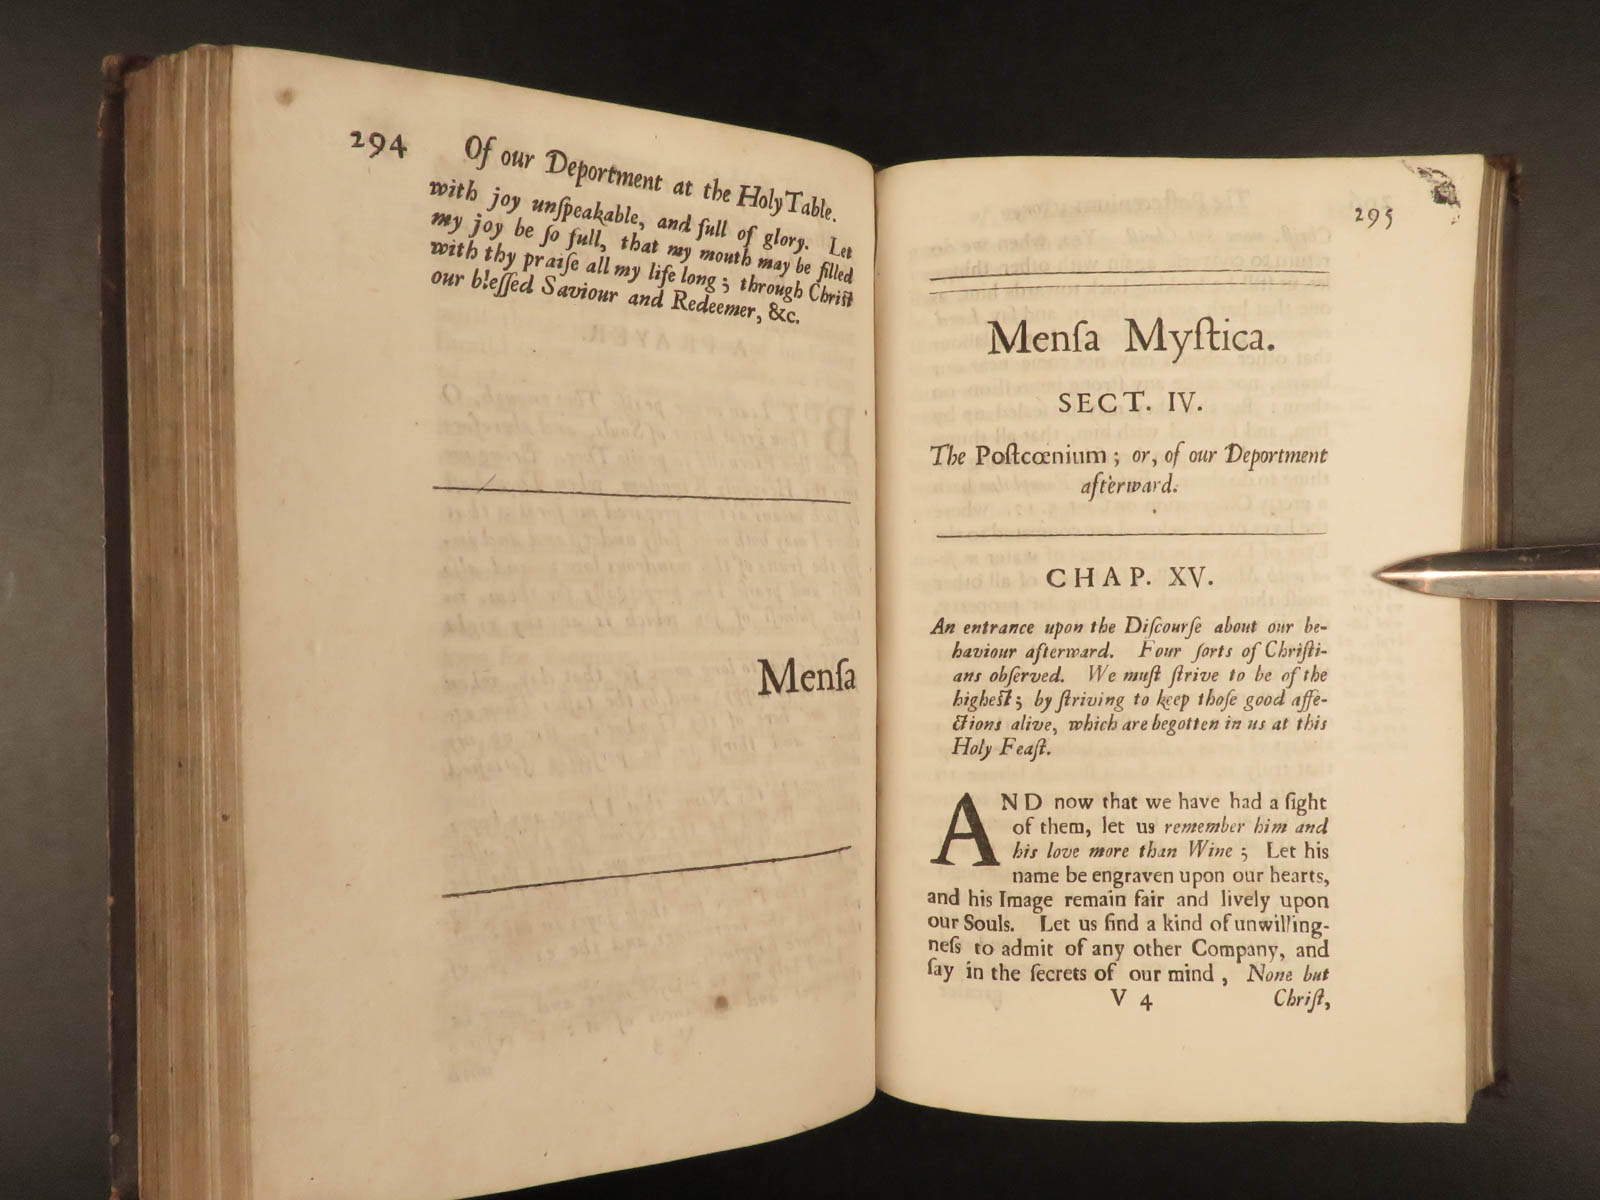 294 Of our Deportment at the Holy Table.
with joy unſpeakable, and full of glory. Let
my joy be ſo full, that my mouth may be filled
with thy praiſe all my life long; through Chriſt
our bleſſed Saviour and Redeemer, &c.
Menſa
295
Menſa Myſtica.
SECT. IV.
The Poſtcœnium; or, of our Deportment
afterward.
CHAP. XV.
An entrance upon the Diſcourſe about our be-
haviour afterward. Four ſorts of Chriſti-
ans obſerved. We muſt ſtrive to be of the
higheſt; by ſtriving to keep thoſe good affe-
ctions alive, which are begotten in us at this
Holy Feaſt.
AND now that we have had a ſight
of them, let us remember him and
his love more than Wine; Let his
name be engraven upon our hearts,
and his Image remain fair and lively upon
our Souls. Let us find a kind of unwilling-
neſs to admit of any other Company, and
ſay in the ſecrets of our mind, None but
V 4 Chriſt,